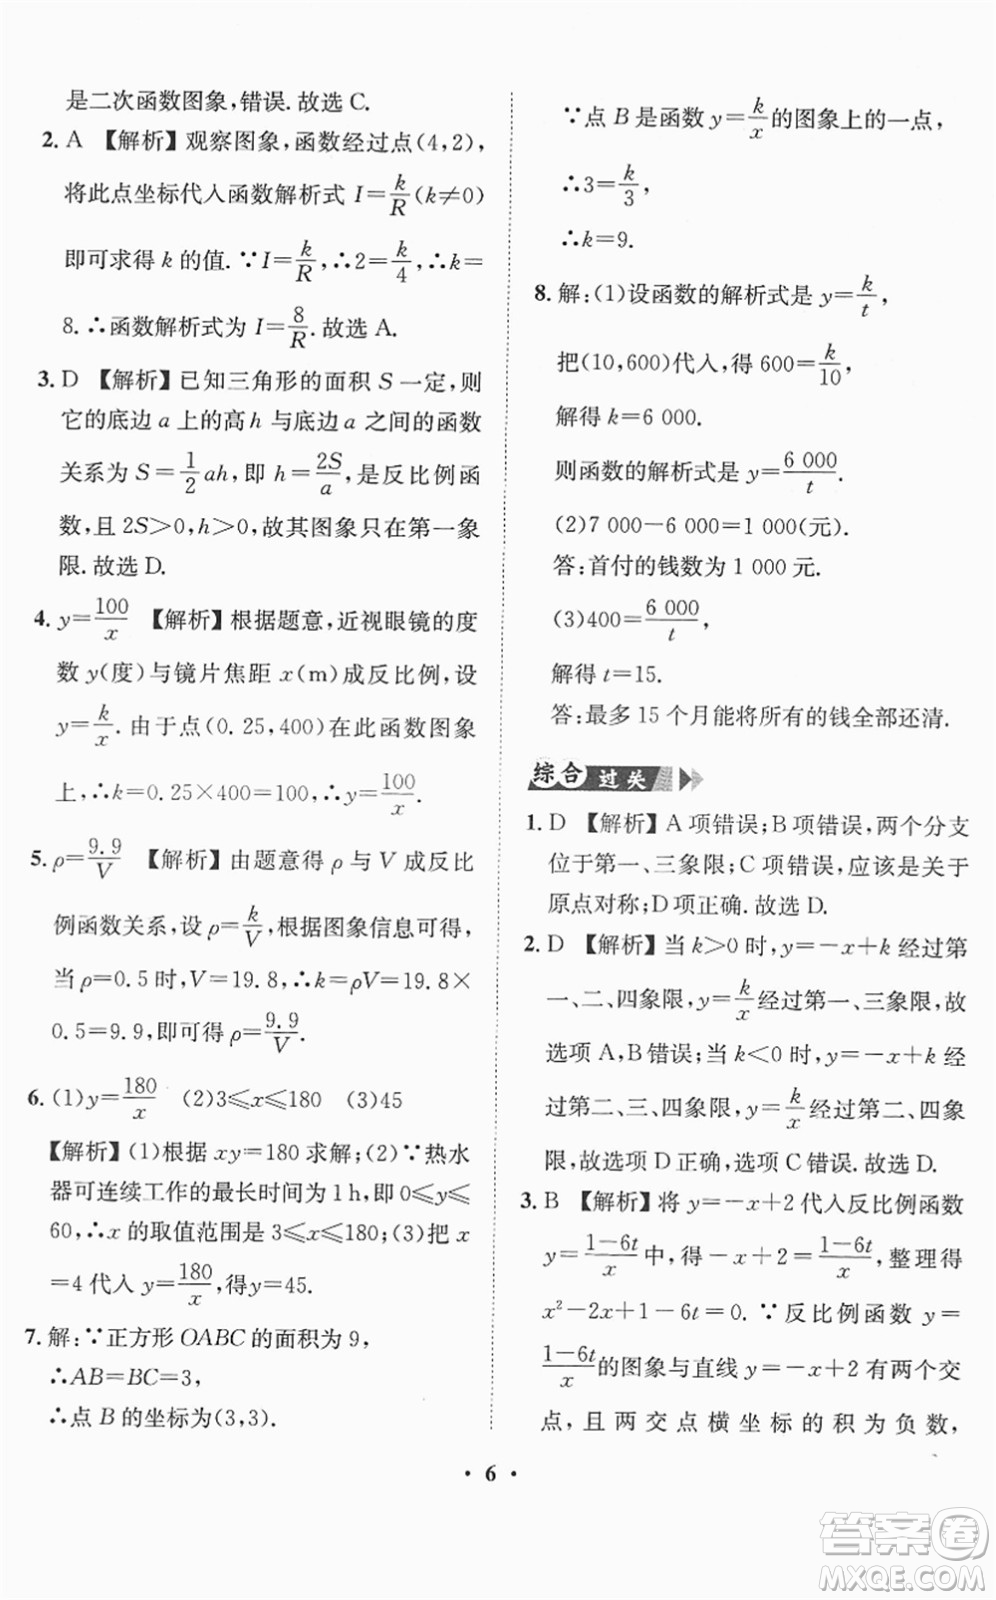 是二次函数图象,错误.故选 C.
2. A 【解析】观察图象,函数经过点(4,2),
将此点坐标代入函数解析式 I=k/R(k≠0)
即可求得 k 的值.∵I=k/R,∴2=k/4,∴k=
8.∴函数解析式为 I=8/R.故选 A.
3. D 【解析】已知三角形的面积 S 一定,则
它的底边 a 上的高 h 与底边 a 之间的函数
关系为 S=1/2ah,即 h=2S/a,是反比例函
数,且 2S>0,h>0,故其图象只在第一象
限.故选 D.
4. y=100/x 【解析】根据题意,近视眼镜的度
数 y(度)与镜片焦距 x(m)成反比例,设
y=k/x.由于点(0.25,400)在此函数图象
上,∴k=0.25×400=100,∴y=100/x.
5. ρ=9.9/V 【解析】由题意得 ρ 与 V 成反比
例函数关系,设 ρ=k/V,根据图象信息可得
当 ρ=0.5 时,V=19.8,∴k=ρV=19.8×
0.5=9.9,即可得 ρ=9.9/V.
6. (1)y=180/x (2)3≤x≤180 (3)45
【解析】(1)根据 xy=180 求解;(2)∵热水
器可连续工作的最长时间为 1 h,即 0≤y≤
60,∴x 的取值范围是 3≤x≤180;(3)把 x
=4 代入 y=180/x,得 y=45.
7. 解:∵正方形 OABC 的面积为 9,
∴AB=BC=3,
∴点 B 的坐标为(3,3).
∵点 B 是函数 y=k/x的图象上的一点,
∴3=k/3,
∴k=9.
8. 解:(1)设函数的解析式是 y=k/t,
把(10,600)代入,得 600=k/10,
解得 k=6 000.
则函数的解析式是 y=6 000/t.
(2)7 000-6 000=1 000(元).
答:首付的钱数为 1 000 元.
(3)400=6 000/t,
解得 t=15.
答:最多 15 个月能将所有的钱全部还清.
综合过关
1. D 【解析】A 项错误;B 项错误,两个分支
位于第一、三象限;C 项错误,应该是关于
原点对称;D 项正确.故选 D.
2. D 【解析】当 k>0 时,y=-x+k 经过第
一、二、四象限,y=k/x经过第一、三象限,故
选项 A,B 错误;当 k<0 时,y=-x+k 经
过第二、三、四象限,y=k/x经过第二、四象
限,故选项 D 正确,选项 C 错误.故选 D.
3. B 【解析】将 y=-x+2 代入反比例函数
y=1-6t/x中,得 -x+2=1-6t/x,整理得
x²-2x+1-6t=0.∵反比例函数 y=
1-6t/x的图象与直线 y=-x+2 有两个交
点,且两交点横坐标的积为负数,
· 6 ·
答案卷
MXQE.COM